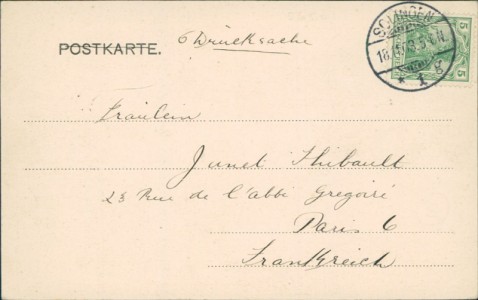 POSTKARTE. Drucksache
SOLINGEN
5 5
Fräulein
Junet Thibault
23 Rue de l'abbé Gregoiré
Paris 6
Frankreich